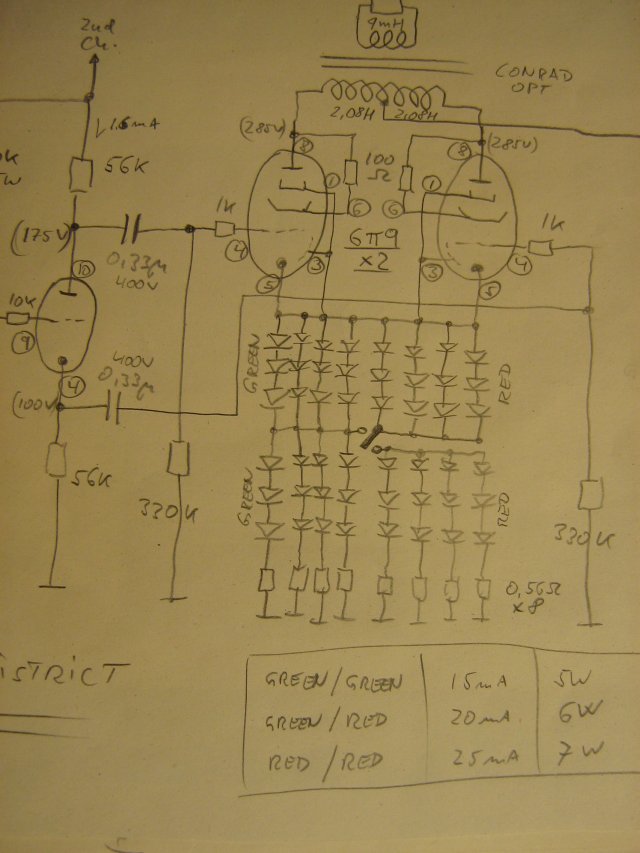 9mH
2nd
Ch.
CONRAD
OPT
1.6mA
2,08H 2,08H
(285V) (285V)
56K
8 8
100
Ω
1 1
6 6
1K 1K
(175V)
4 4
6П9
x2
0,33μ
400V
3 3
5 5
10
10K
9
400V
0,33μ
4
(100V)
GREEN RED
56K
330K
GREEN RED
330K
0,56Ω
x8
ISTRICT
GREEN/GREEN 15mA 5W
GREEN/RED 20mA. 6W
RED/RED 25mA 7W